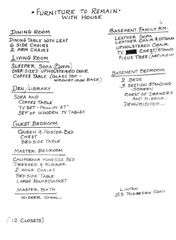 "FURNITURE TO REMAIN"
WITH HOUSE
DINING ROOM
DINING TABLE WITH LEAF
6 SIDE CHAIRS
2 ARM CHAIRS
LIVING ROOM
SLEEPER SOFA
OVER-SIZED UPHOLSTERED CHAIR
COFFEE TABLE (GLASS TOP -
WROUGHT IRON BASE)
DEN / LIBRARY
SOFA AND
COFFEE TABLE
TV SET
SET OF WOODEN TV TABLES
GUEST BEDROOM
QUEEN 4 POSTER BED
CHEST
BEDSIDE TABLE
MASTER BEDROOM
CALIFORNIA KING SIZE BED
DRESSER & MIRROR
2 WING CHAIRS
BEDSIDE TABLE
LARGE ROUND BASKET
MASTER BATH
WICKER
(12 CLOSETS)
BASEMENT FAMILY RM.
LEATHER SOFA
LEATHER CHAIR & OTTOMAN
UPHOLSTERED CHAIR
TV CHEST/STAND
FICUS TREE (ARTIFICIAL)
BASEMENT BEDROOM
2 BEDS
3 SECTION STANDING
SCREEN
CHEST OF DRAWERS
AND MIRROR
DEHUMIDIFIER
ROAD